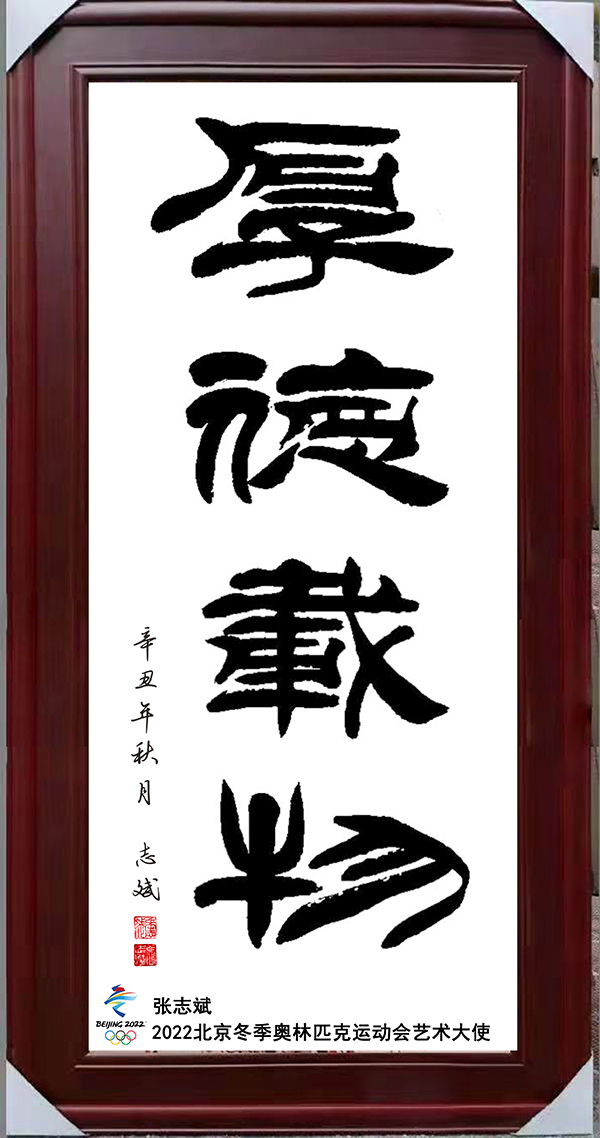 厚德载物
辛丑年秋月 志斌
BEIJING 2022
张志斌
2022北京冬季奥林匹克运动会艺术大使